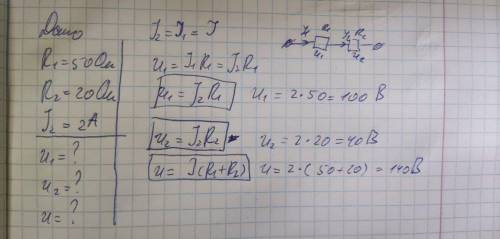 Дано
R₁ = 50 Ом
R₂ = 20 Ом
J₂ = 2А
u₁ = ?
u₂ = ?
u = ?
J₂ = J₁ = J
u₁ = J₁R₁ = J₂R₁
u₁ = J₂R₁ u₁ = 2·50 = 100 В
u₂ = J₂R₂ u₂ = 2·20 = 40В
u = J(R₁+R₂) u = 2·(50+20) = 140В
J₁ R₁ J₂ R₂
u₁ u₂